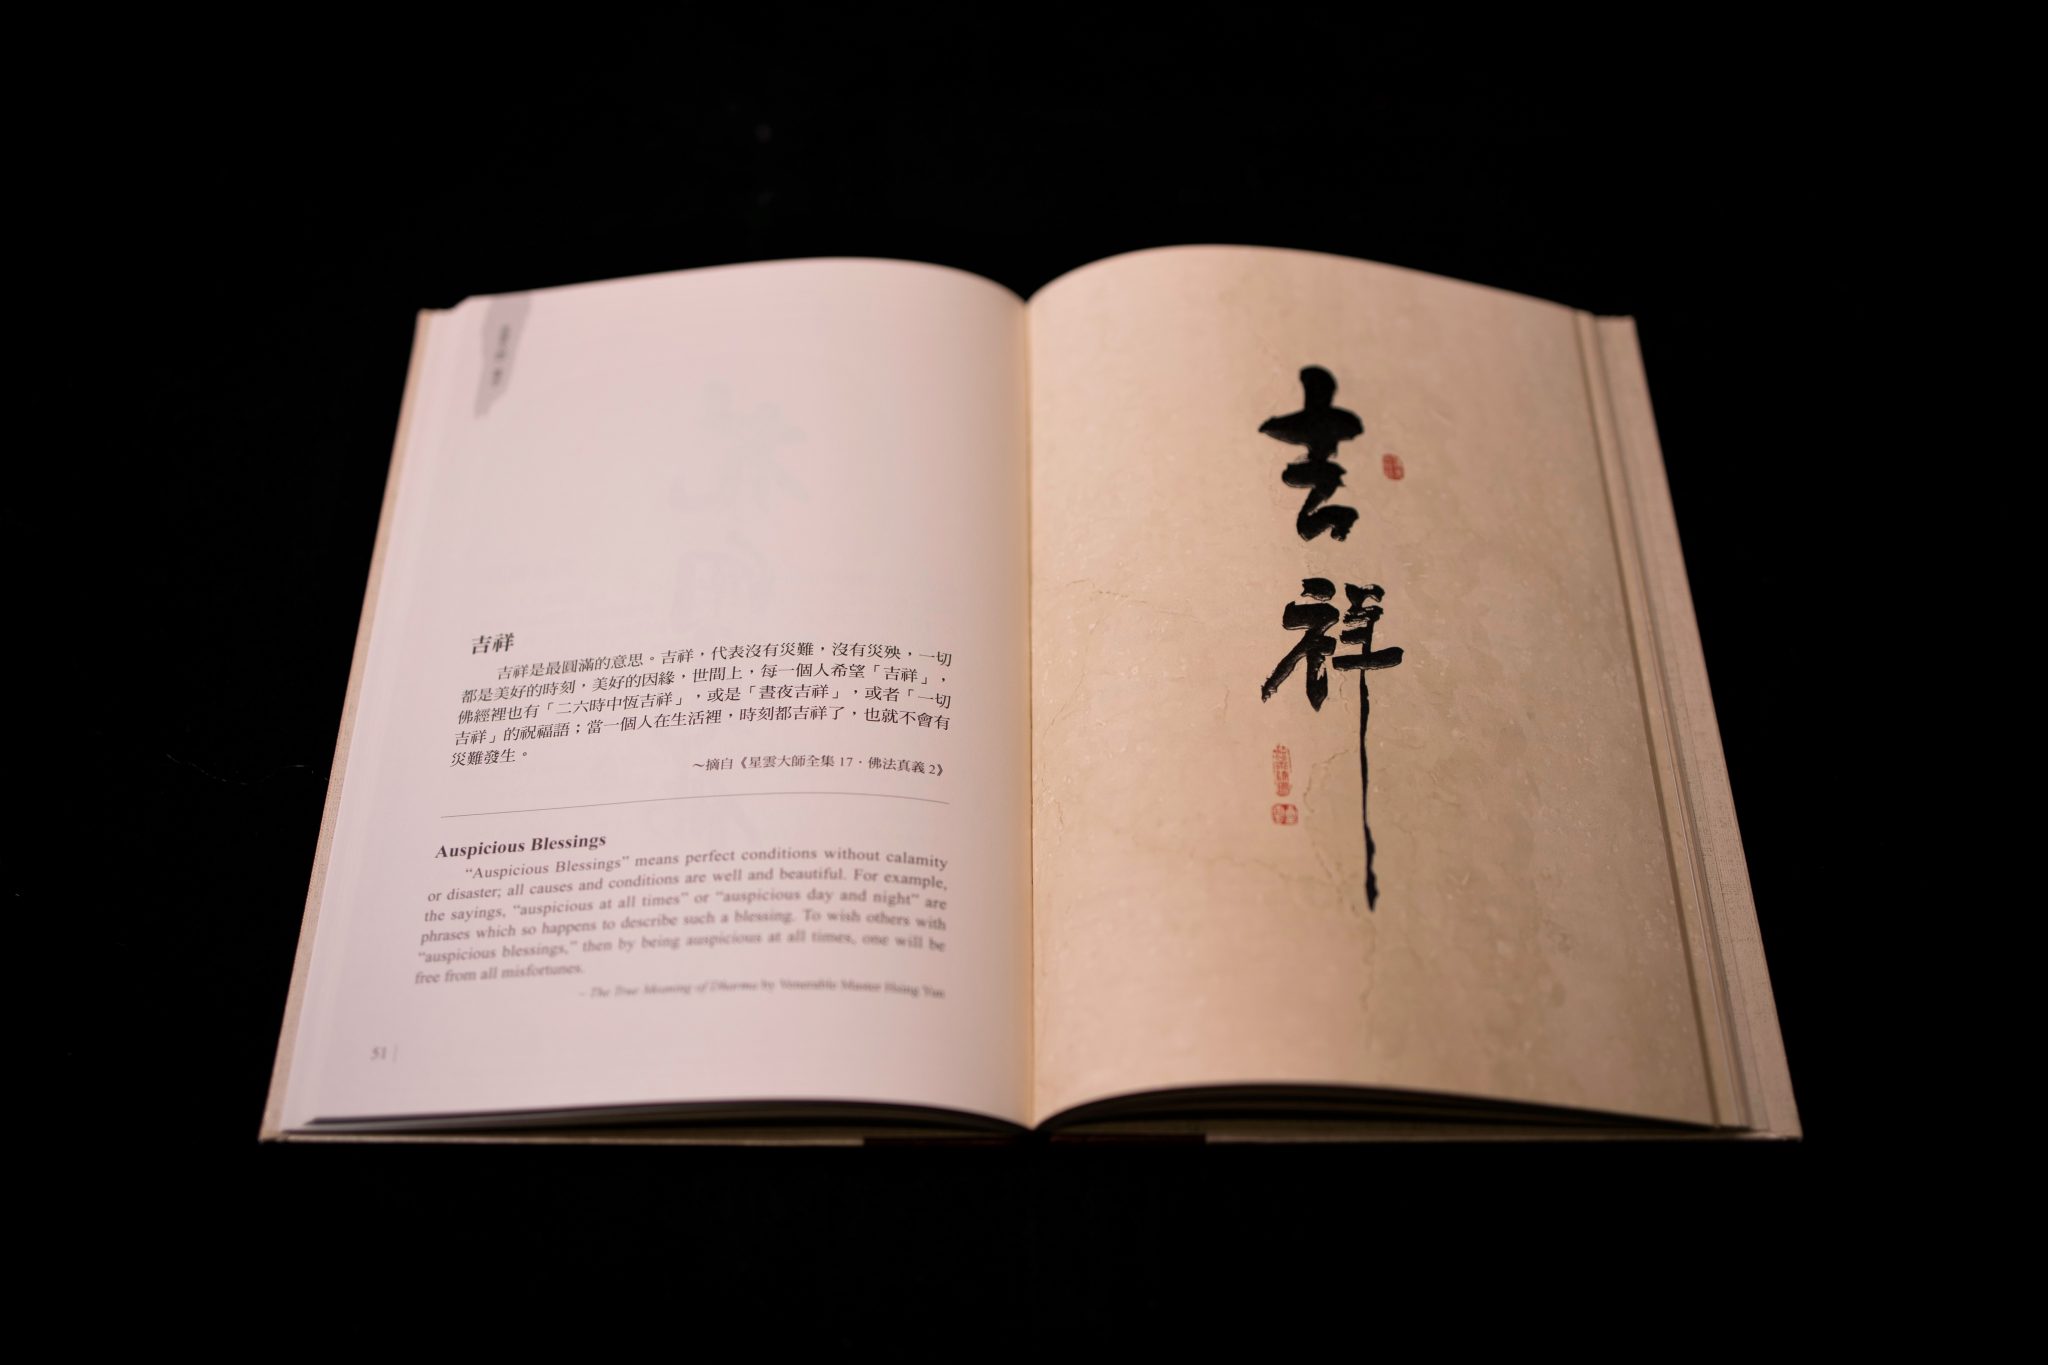 吉祥
吉祥是最圓滿的意思。吉祥，代表沒有災難，沒有災殃，一切
都是美好的時刻，美好的因緣，世間上，每一個人希望「吉祥」，
佛經裡也有「二六時中恆吉祥」，或是「晝夜吉祥」，或者「一切
吉祥」的祝福語；當一個人在生活裡，時刻都吉祥了，也就不會有
災難發生。
～摘自《星雲大師全集 17．佛法真義 2》
Auspicious Blessings
“Auspicious Blessings” means perfect conditions without calamity
or disaster; all causes and conditions are well and beautiful. For example,
the sayings, “auspicious at all times” or “auspicious day and night“ are
phrases which so happens to describe such a blessing. To wish others with
“auspicious blessings,” then by being auspicious at all times, one will be
free from all misfortunes.
~ The True Meaning of Dharma by Venerable Master Hsing Yun
51
吉
祥